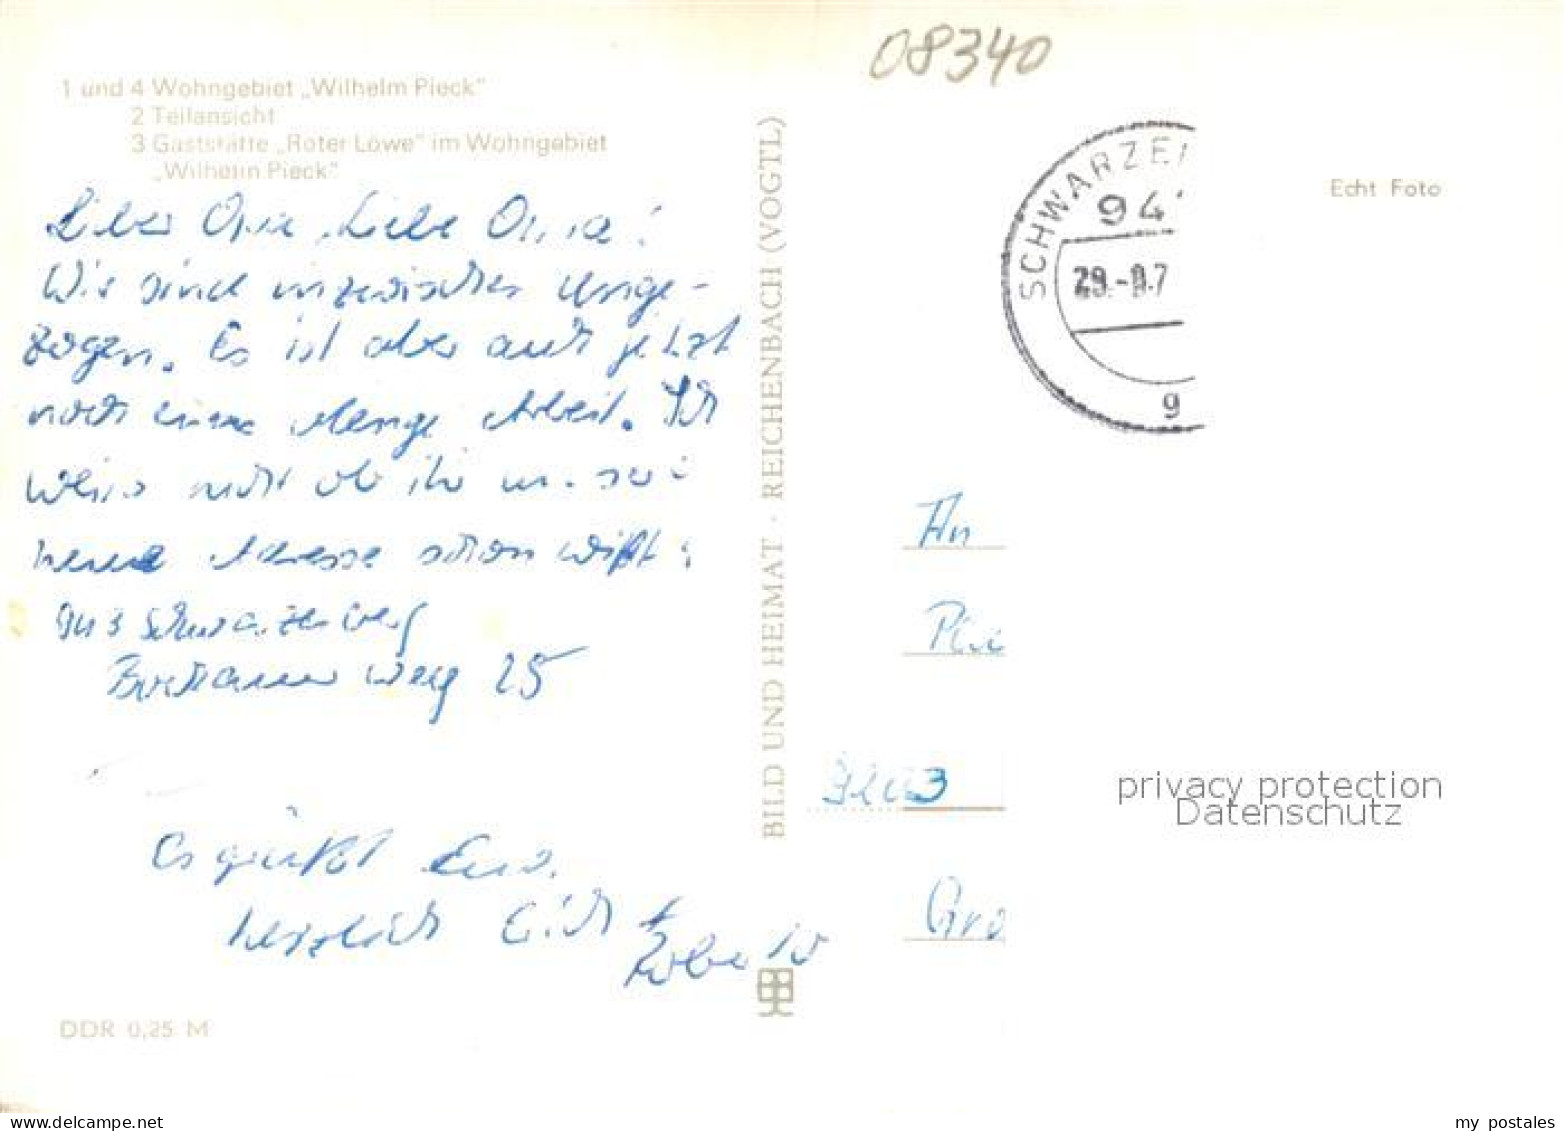 08340
1 und 4 Wohngebiet „Wilhelm Pieck"
2 Teilansicht
3 Gaststätte „Roter Löwe" im Wohngebiet
„Wilhelm Pieck"
Lieber Opa, Liebe Oma!
Wir sind inzwischen umge-
zogen. Es ist aber auch jetzt
noch eine Menge Arbeit. Ich
weiss nicht ob ihr unsere
neue Adresse schon wißt:
943 Schwarzenberg
Weg 25
Es grüßt Euch
herzlich
DDR 0,25 M
BILD UND HEIMAT · REICHENBACH (VOGTL)
SCHWARZE
94
29.-9.7
g
Echt Foto
An
9203
Gro
privacy protection
Datenschutz
my postales
www.delcampe.net